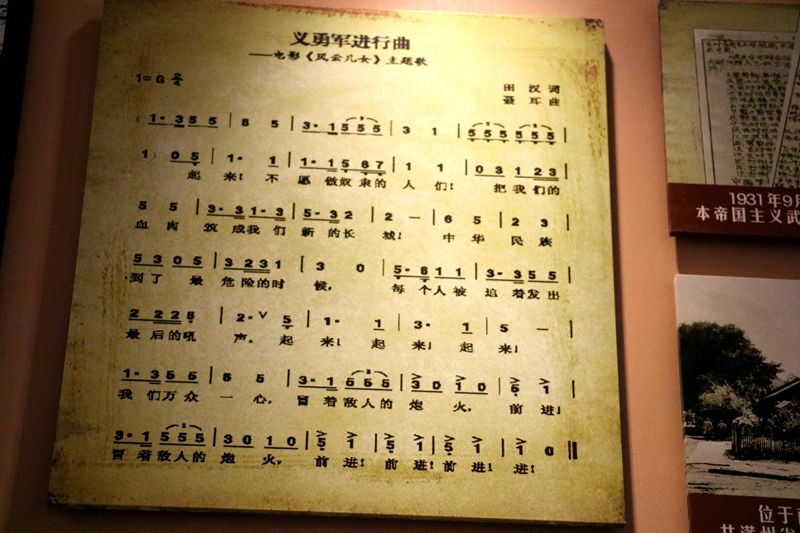 义勇军进行曲
——电影《风云儿女》主题歌
1=G 2/4
田 汉 词
聂 耳 曲
( 1· 3 5 5 | 6 5 | 3· 1 5 5 5 | 3 1 | 5 5 5 5 5 5 |
1 ) 0 5 | 1· 1 | 1· 1 5 6 7 | 1 1 | 0 3 1 2 3 |
起 来! 不 愿 做奴 隶的 人 们! 把我 们的
5 5 | 3· 3 1· 3 | 5· 3 2 | 2 — | 6 5 | 2 3 |
血 肉 筑 成我 们 新 的长 城! 中 华 民 族
5 3 0 5 | 3 2 3 1 | 3 0 | 5· 6 1 1 | 3· 3 5 5 |
到了 最 危险的时 候, 每 个人 被 迫 着发 出
2 2 2 6 | 2· ∨ 5 | 1· 1 | 3· 1 | 5 — |
最 后的吼 声。 起 来! 起 来! 起 来!
1· 3 5 5 | 6 5 | 3· 1 5 5 5 | 3 0 1 0 | 5 1 |
我 们万 众 一 心, 冒 着敌人的 炮 火, 前 进!
3· 1 5 5 5 | 3 0 1 0 | 5 1 | 5 1 | 5 1 | 1 0 ‖
冒 着敌人的 炮 火, 前 进! 前 进! 前 进! 进!
1931年9月
本帝国主义武
位于